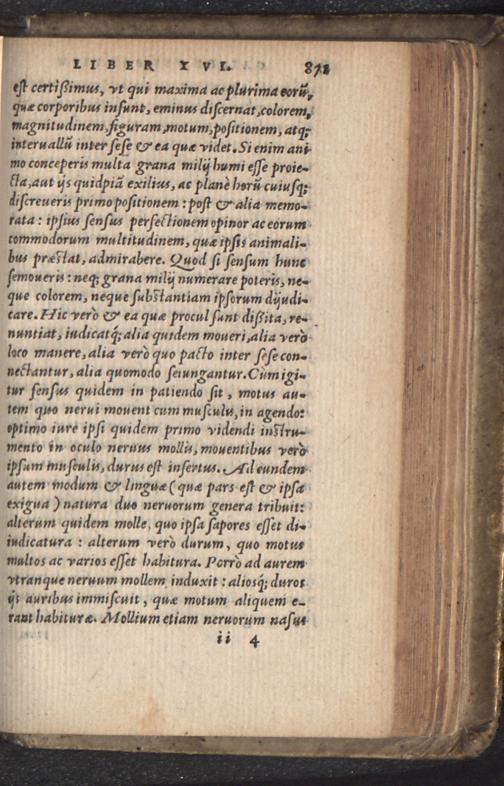 LIBER XVI. 871
est certißimus, vt qui maxima ac plurima eorũ,
quæ corporibus insunt, eminus discernat, colorem,
magnitudinem, figuram, motum, positionem, atq;
interuallũ inter sese & ea quæ videt. Si enim ani-
mo conceperis multa grana milij humi esse proie-
cta, aut ijs quidpiã exilius, ac planè horũ cuiusq;
discreueris primo positionem: post & alia memo-
rata: ipsius sensus perfectionem opinor ac eorum
commodorum multitudinem, quæ ipsis animali-
bus præstat, admirabere. Quod si sensum hunc
semoueris: neq; grana milij numerare poteris, ne-
que colorem, neque substantiam ipsorum dijudi-
care. Hic verò & ea quæ procul sunt dißita, re-
nuntiat, iudicatq́; alia quidem moueri, alia verò
loco manere, alia verò quo pacto inter sese con-
nectantur, alia quomodo seiungantur. Cùm igi-
tur sensus quidem in patiendo sit, motus au-
tem quo nerui mouent cum musculis, in agendo:
optimo iure ipsi quidem primo videndi instru-
mento in oculo neruus mollis, mouentibus verò
ipsum musculis, durus est insertus. Ad eundem
autem modum & linguæ (quæ pars est & ipsa
exigua) natura duo neruorum genera tribuit:
alterum quidem molle, quo ipsa sapores esset di-
iudicatura: alterum verò durum, quo motus
multos ac varios esset habitura. Porrò ad aurem
vtranque neruum mollem induxit: aliosq́; duros
ijs auribus immiscuit, quæ motum aliquem e-
rant habituræ. Mollium etiam neruorum nasus
ii 4